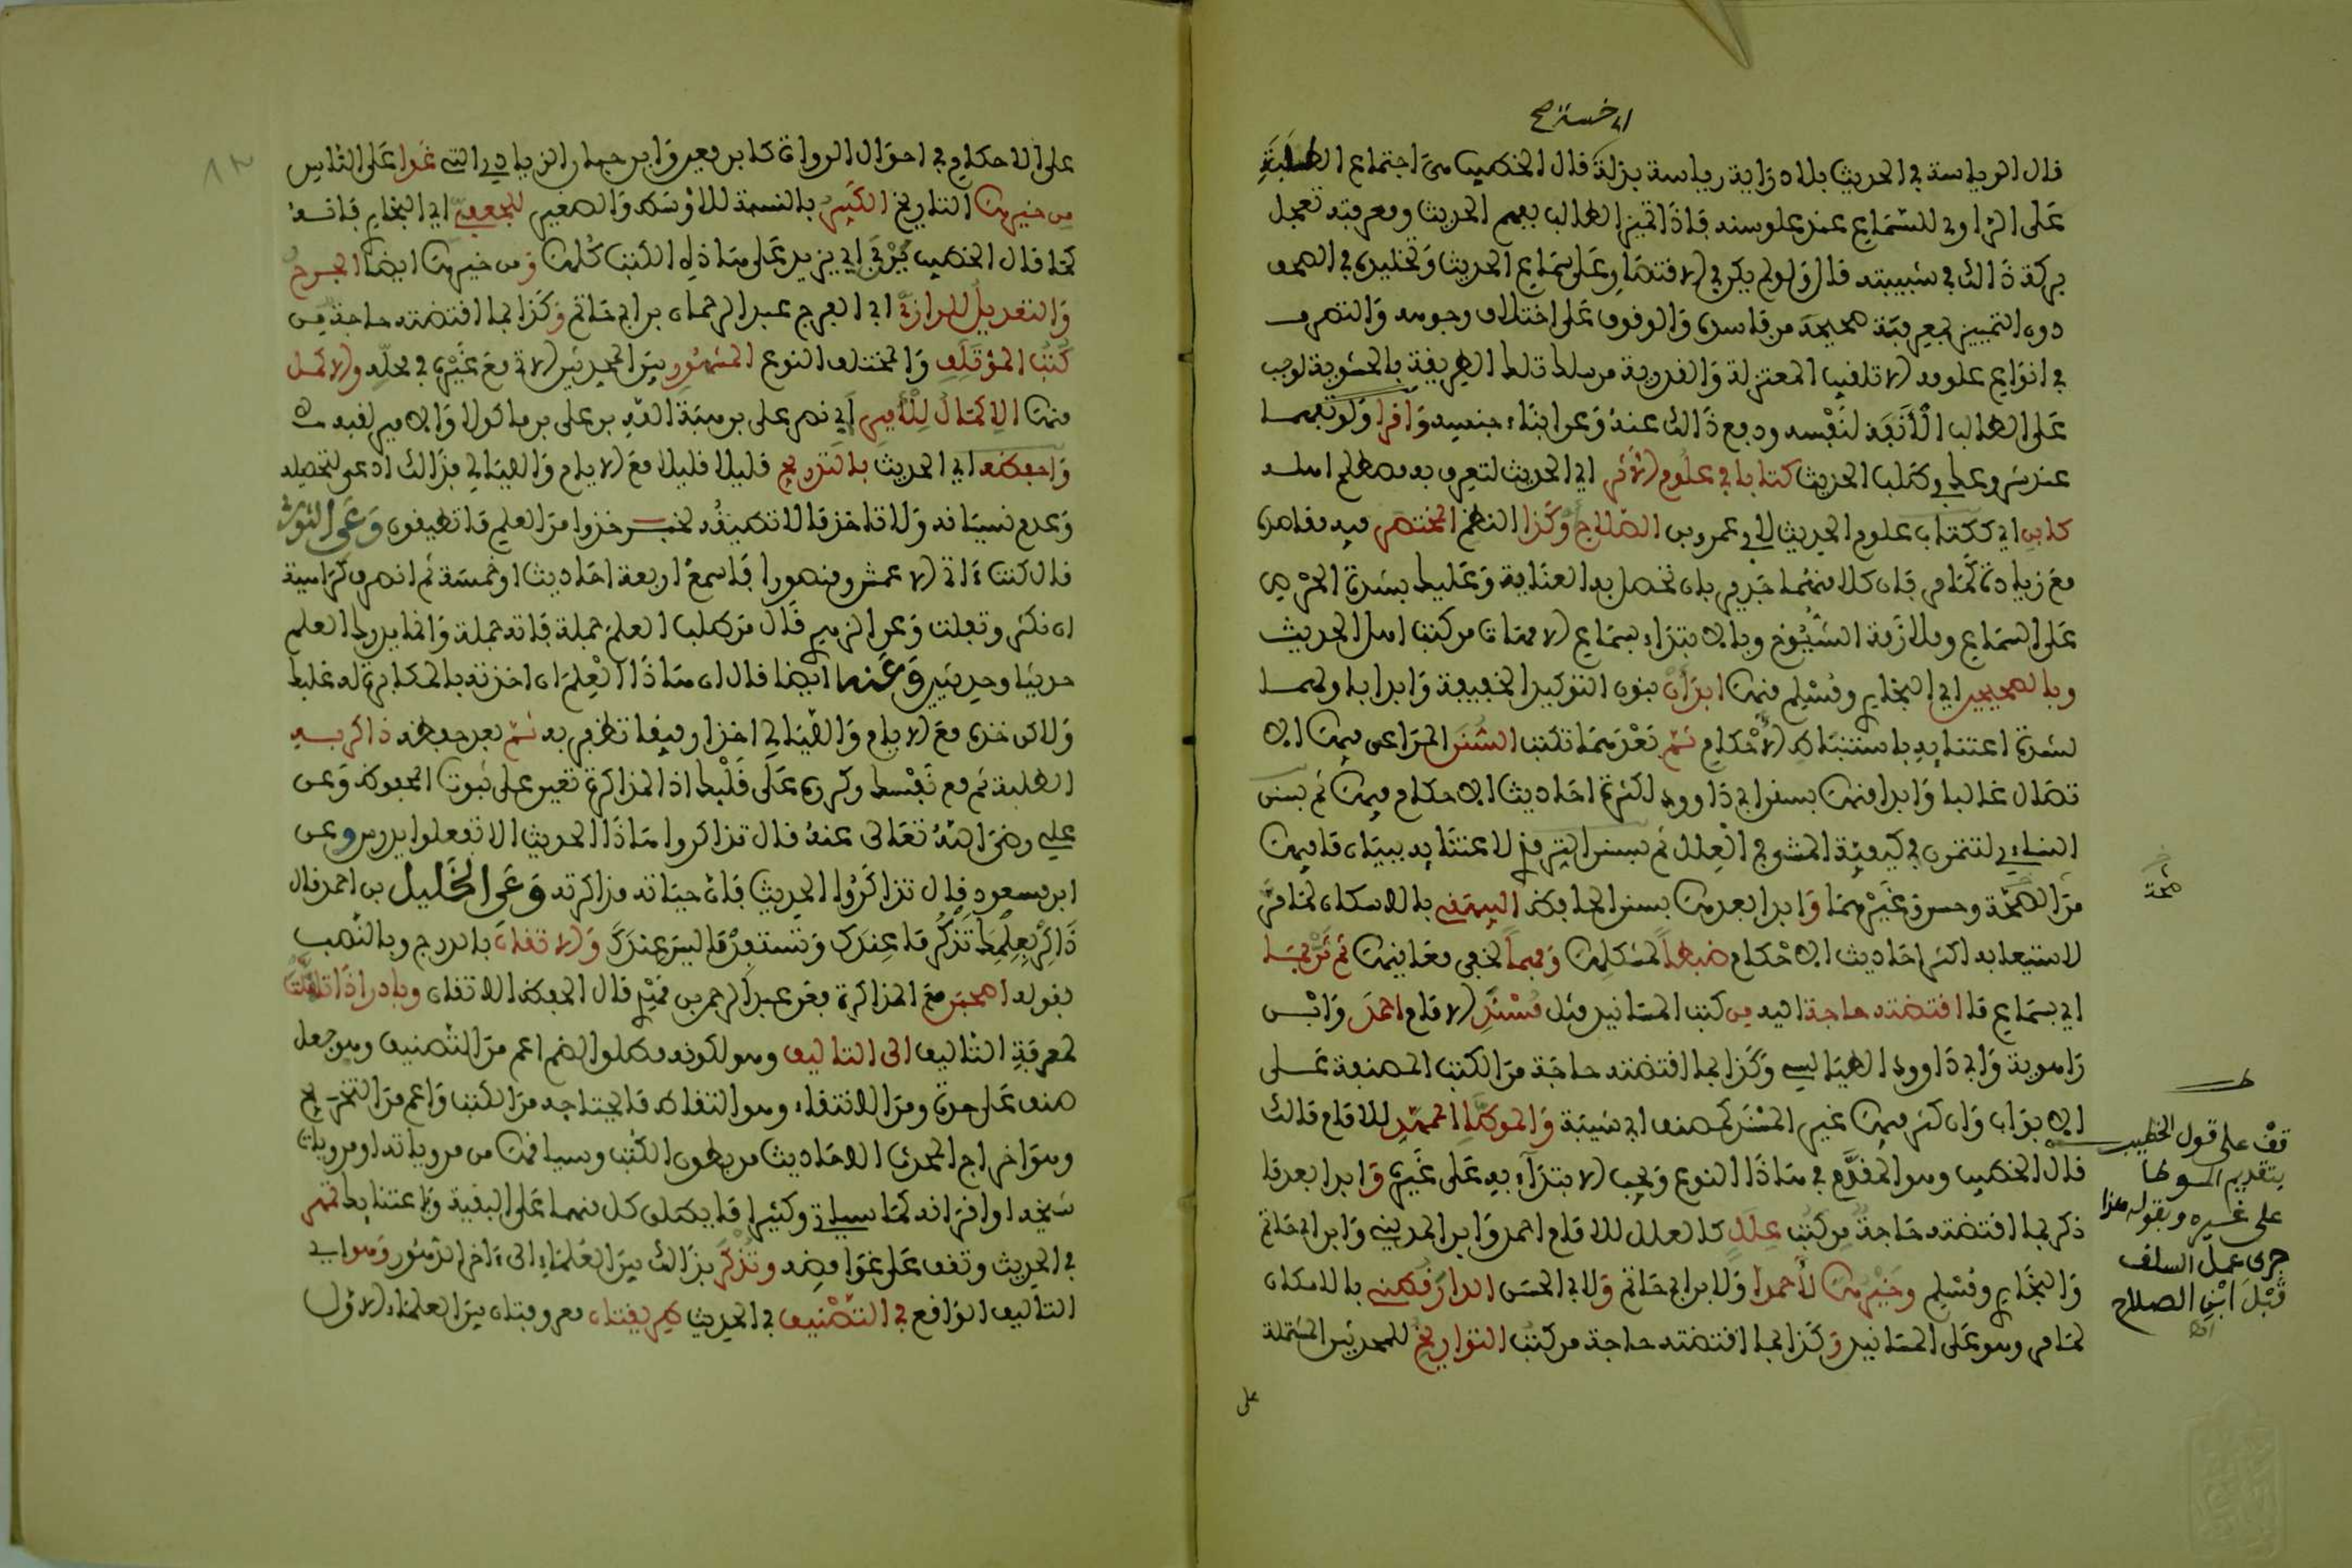 اي خسة صح
قال الرياسة في الحديث بلا دراية رياسة نذلة قال الخطيب متى اجتماع الطلبة
على الراوي للسماع عند علو سنه فإذا تميز الطالب بفهم الحديث ومعرفته تعجل
بركة ذالك في شبيبته قال ولو لم يكن في الاقتصار على سماع الحديث وتخليده في الصحف
دون التمييز بمعرفة صحيحه من فاسده والوقوف على اختلاف وجوهه والتصرف
في انواع علومه الا تلقيب المعتزلة والقدرية من سلك تلك الطريقة بالحشوية لوجب
على الطالب الأنفة لنفسه ودفع ذالك عنه وعن ابناء جنسه واقرا ولو تفهما
عند شروعك في طلب الحديث كتابا في علوم الأثر اي الحديث لتعرف به مصطلح اهله
كابن اي ككتاب علوم الحديث لابي عمرو بن الصلاح وكذا النظم المختصر فيه مقاصده
مع زيادة كما مر فان كلا منهما جدير بان تحصل به العناية وعليك بشدة الحرص
على السماع وملازمة الشيوخ وبالابتداء بسماع الامهات من كتب اهل الحديث
وبالصحيحين اي البخاري ومسلم منها ابدأن بنون التوكيد الخفيفة وابدا باولهما
لشدة اعتنايه باستنباط الأحكام ثم بعدهما بكتب السنن المراعى فيها الا
تصال غالبا وابدا منها بسنن ابي داوود لكثرة احاديث الاحكام فيها ثم بسنن
النساءي لتتمرن في كيفية المشي في العلل ثم بسنن الترمذي لاعتنايه ببيان ما فيها
من الصحة وحسن وغيرهما وابدا بعدها بسنن الحافظ البيهقي بالاسكان لما مر
لاستيعابه اكثر احاديث الاحكام ضبطا لمشكلها وفهما لخفي معانيها ثم ثن بما
اي بسماع ما اقتضته حاجة اليه من كتب المسانيد مثل مسند الامام احمد وابن
راهوية وابي داوود الطيالسي وكذا بما اقتضته حاجة من الكتب المصنفة على
الابواب وان كثر فيها غير المسند كمصنف ابي شيبة والموطأ الممهد للامام مالك
قال الخطيب وهو المقدم في هاذا النوع ويجب الابتداء به على غيره وابدا بعد ما
ذكر بما اقتضته حاجة من كتب علل كالعلل للامام احمد وابن المديني وابن ابي حاتم
والبخاري ومسلم وخيرها لأحمدا ولابن ابي حاتم ولابي الحسن الدارقطني بالاسكان
لما مر وهو على المسانيد وكذا بما اقتضته حاجة من كتب التواريخ للمحدثين المشتملة
على
صحة
قف على قول الخطيب
بتقديم الموطا
على غيره وبقوله هذا
جرى عمل السلف
قبل ابن الصلاح
على الاحكام في احوال الرواة كابن معين وابن حبان الزيادي التي غدوا على الناس
من خيرها التاريخ الكبير بالنسبة للاوسط والصغير للجعفي اي البخاري فانه
كما قال الخطيب يربي اي يزيد على هاذه الكتب كلها ومن خيرها ايضا الجرح
والتعديل للرازي ابي الفرج عبد الرحمان بن ابي حاتم وكذا بما اقتضته حاجة من
كتب المؤتلف والمختلف النوع المشهور بين المحدثين الاتي مع غيره في محله والاكمل
منها الاكمال للأمير ابي نصر علي بن هبة الله بن علي بن ماكولا والامير لقبه
واحفظه اي الحديث بالتدريج قليلا قليلا مع الايام والليالي فذالك ادعى لتحصيله
وعدم نسيانه ولا تاخذ ما لا تطيقه لخبر خذوا من العلم ما تطيقون وعن الثوري
قال كنت ءاتي الاعمش ومنصورا فاسمع اربعة احاديث او خمسة ثم انصرف كراهية
ان تكثر وتفلت وعن الزهري قال من طلب العلم جملة فاته جملة وانما يدرك العلم
حديثا وحديثين وعنه ايضا قال ان هاذا العلم ان اخذته بالمكابرة له غلبك
ولاكن خذه مع الايام والليالي اخذا رفيقا تظفر به ثم بعد حفظه ذاكر به
الطلبة ثم مع نفسك وكرره على قلبك اذ المذاكرة تعين على ثبوت المحفوظ وعن
علي رضي الله تعالى عنه قال تذاكروا هاذا الحديث الا تفعلوا يدرس وعن
ابن مسعود قال تذاكروا الحديث فان حياته مذاكرته وعن الخليل بن احمد قال
ذاكر بعلمك تذكر ما عندك وتستفد ما ليس عندك والاتقان بالدرج وبالنصب
بقوله اصحبن مع المذاكرة فعن عبد الرحمن بن مهدي قال الحفظ الاتقان وبادر اذا تأهلت
لمعرفة التاليف الى التاليف وهو لكونه مطلق الضم اعم من التصنيف وهو جعل
صنف على حدة ومن الانتقاء وهو التقاط ما يحتاجه من الكتب واعم من التخريج
وهو اخراج المحدث الاحاديث من بطون الكتب وسياقها من مروياته او مرويات
شيخه او اقرانه كما سياتي وكثيرا ما يطلق كل منهما على البقية وباعتنايك تمهر
في الحديث وتقف على غوامضه وتذكر بذالك بين العلماء الى ءاخر الدهور وهو اي
التاليف الواقع في التصنيف في الحديث طريقتان معروفتان بين العلماء الاول